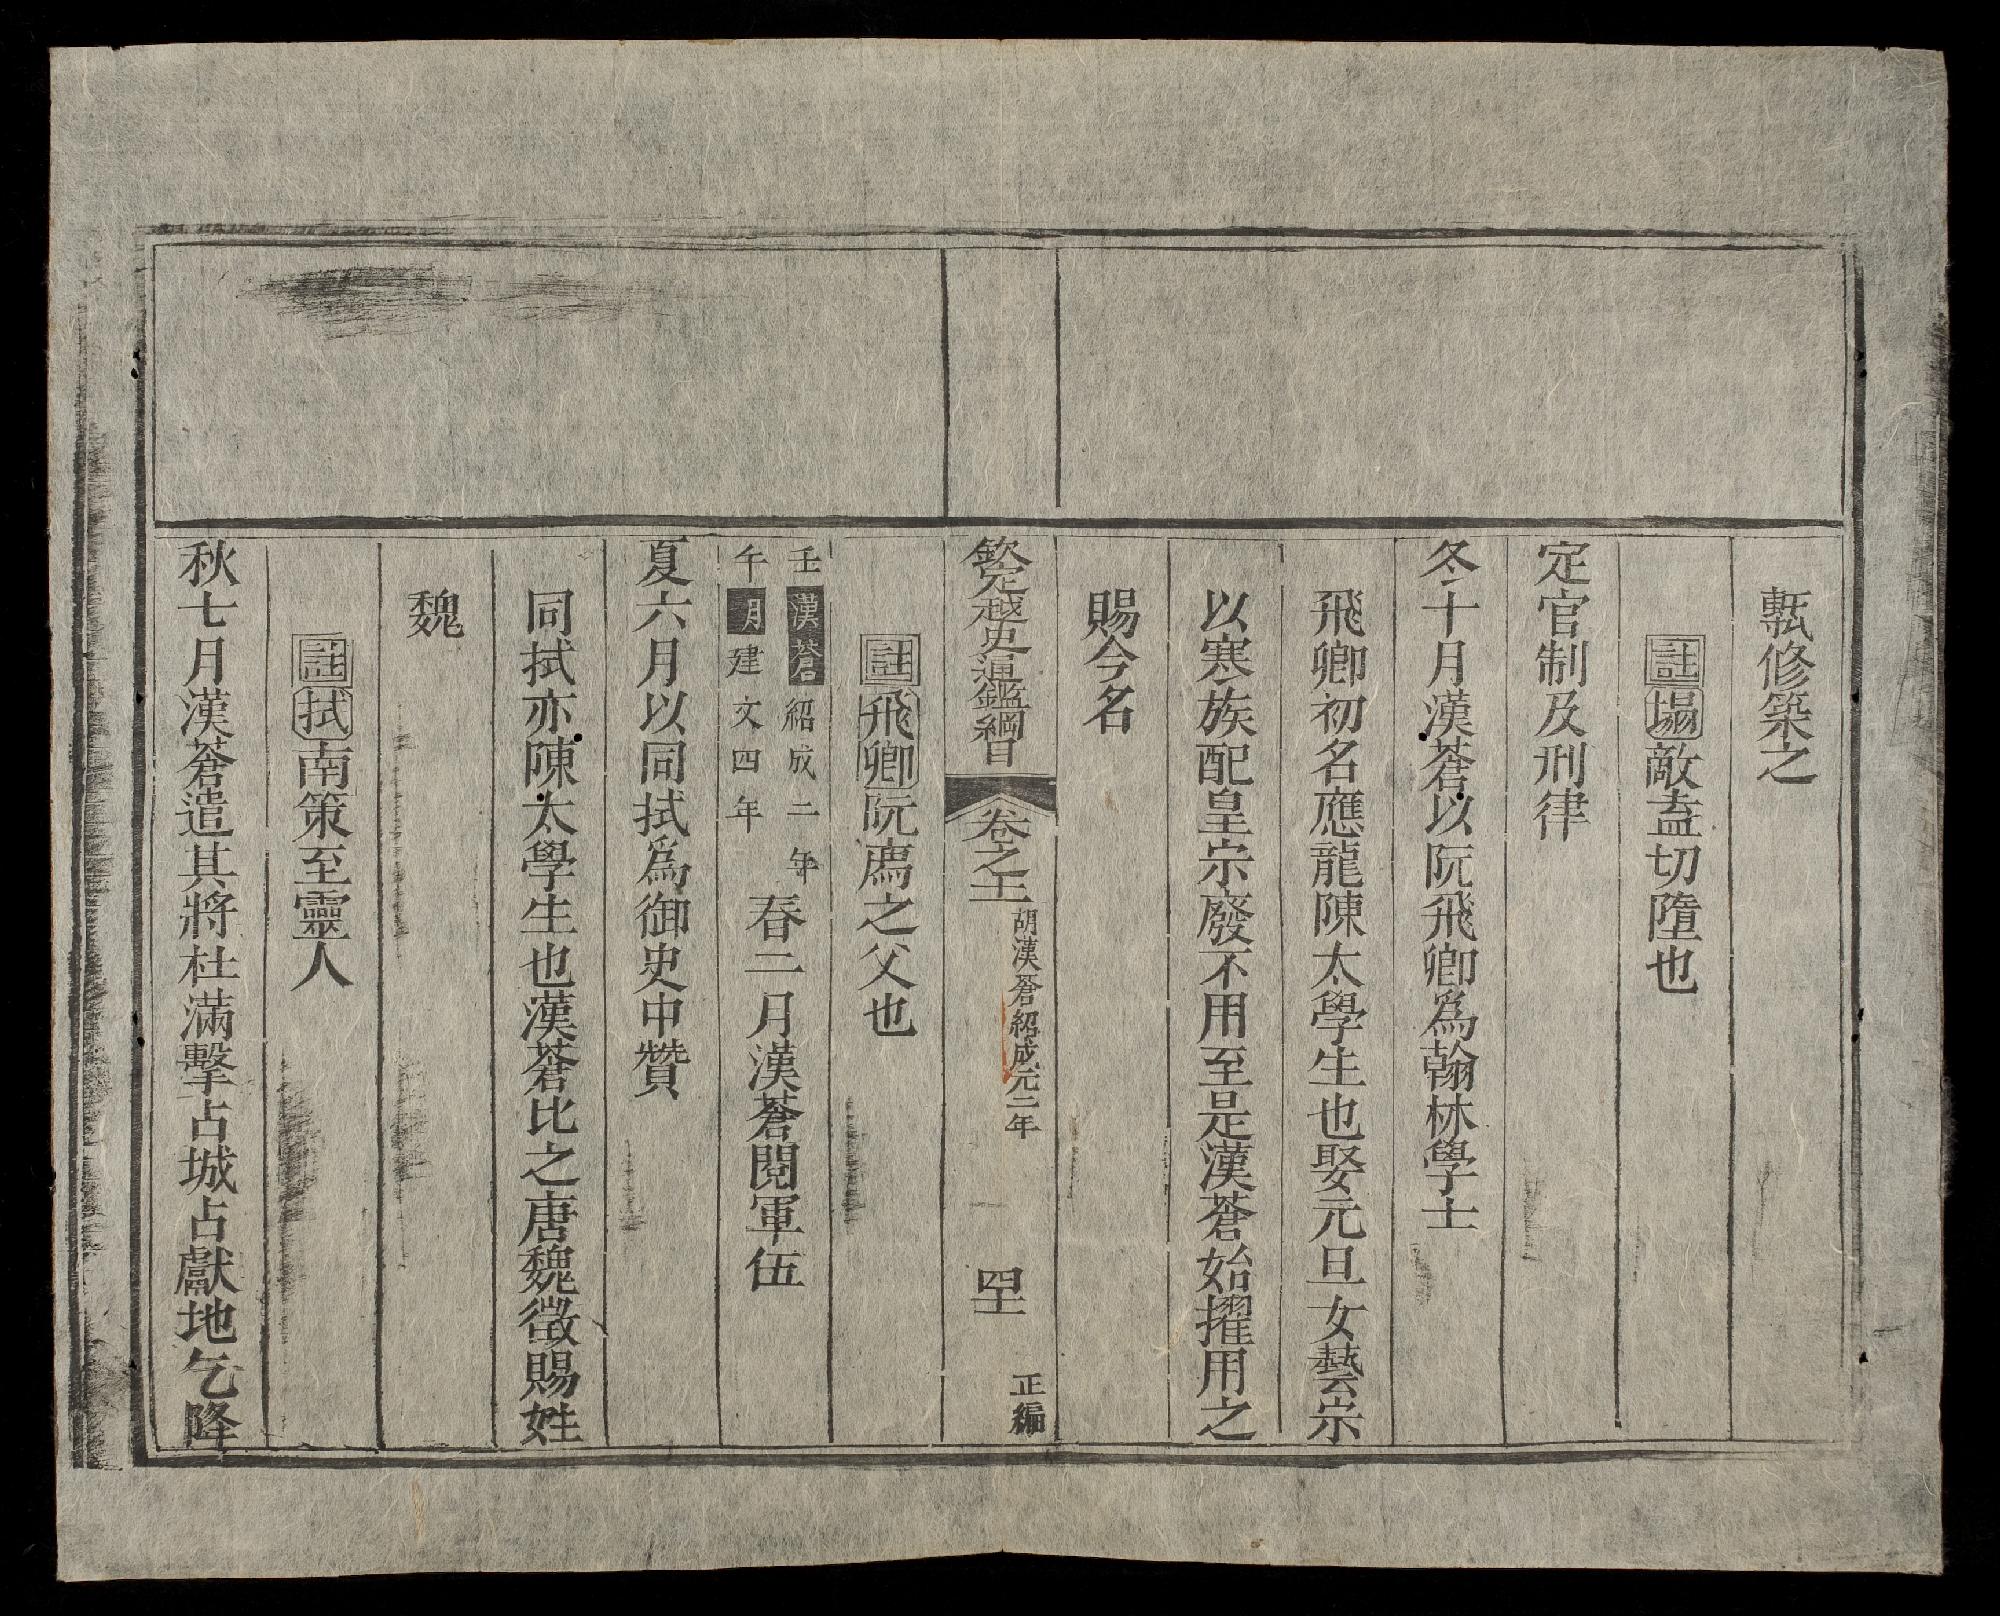 輒修築之
註塌敵盍切墮也
定官制及刑律
冬十月漢蒼以阮飛卿爲翰林學士
飛卿初名應龍陳太學生也娶元旦女藝宗
以寒族配皇宗廢不用至是漢蒼始擢用之
賜今名
欽定越史通鑑綱目 卷之十一 胡漢蒼紹成元二年 四十一 正編
註飛卿阮廌之父也
壬漢蒼紹成二年
午明建文四年春二月漢蒼閱軍伍
夏六月以同拭爲御史中贊
同拭亦陳太學生也漢蒼比之唐魏徵賜姓
魏
註拭南策至靈人
秋七月漢蒼遣其將杜滿擊占城占獻地乞降